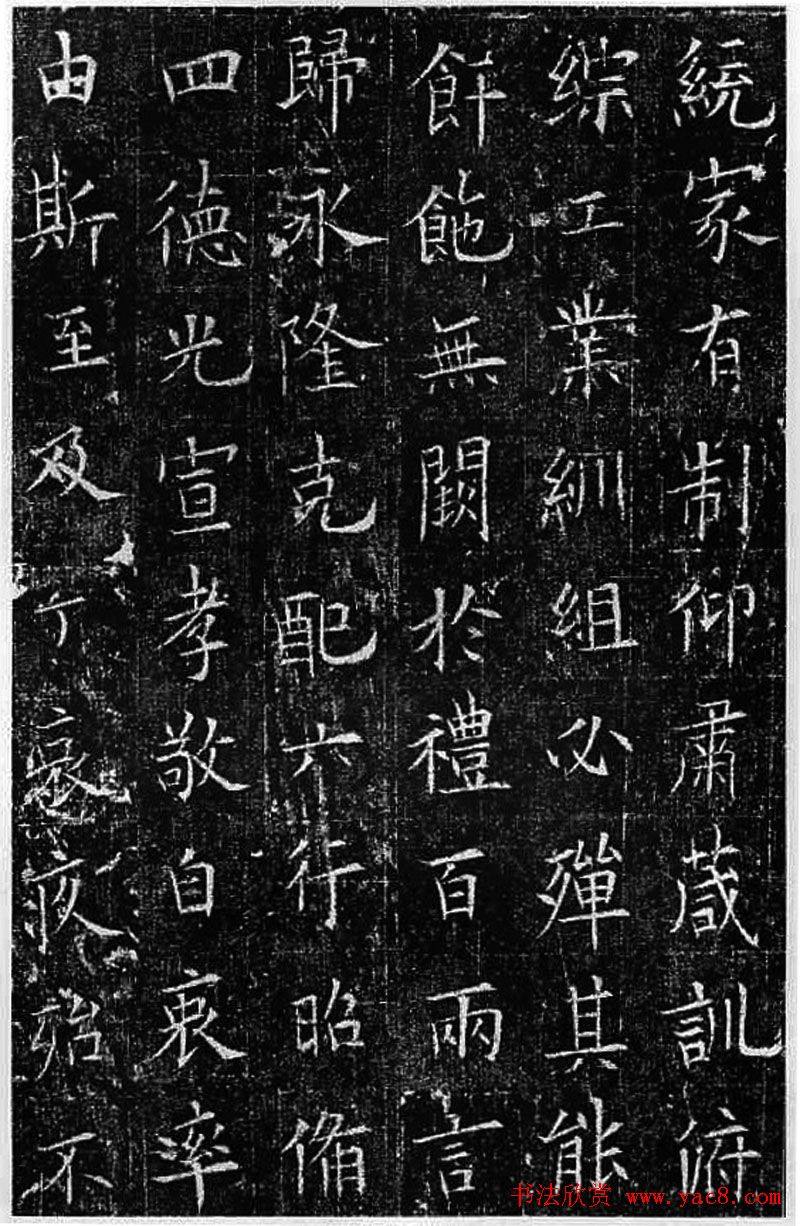 統家有制仰肅葴訓俯
綜工業紃組必殫其能
餅飽無闕於禮百兩言
歸永隆克配六行昭脩
四德光宣孝敬自衷率
由斯至及丁哀疚殆不
书法欣赏 www.yac8.com